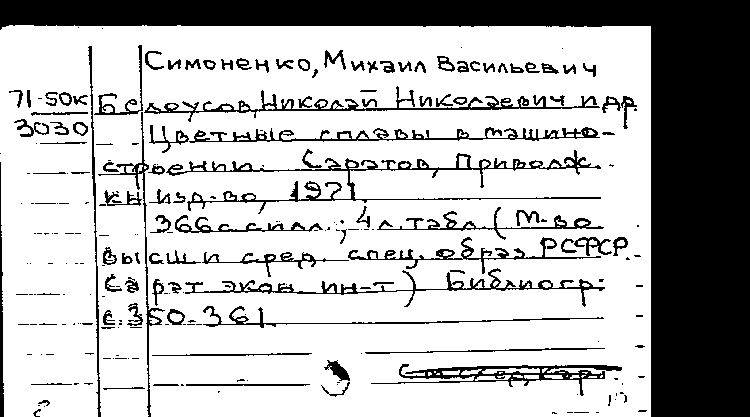 Симоненко, Михаил Васильевич
71-50к
3030
Белоусов, Николай Николаевич и др.
Цветные сплавы в машино-
строении. Саратов, Приволж.
кн изд-во, 1971.
366 с. с илл.; 4 л. табл. (М-во
высш и сред. спец. образ РСФСР.
Сарат экон. ин-т) Библиогр:
с. 350-361.
См след, карт.